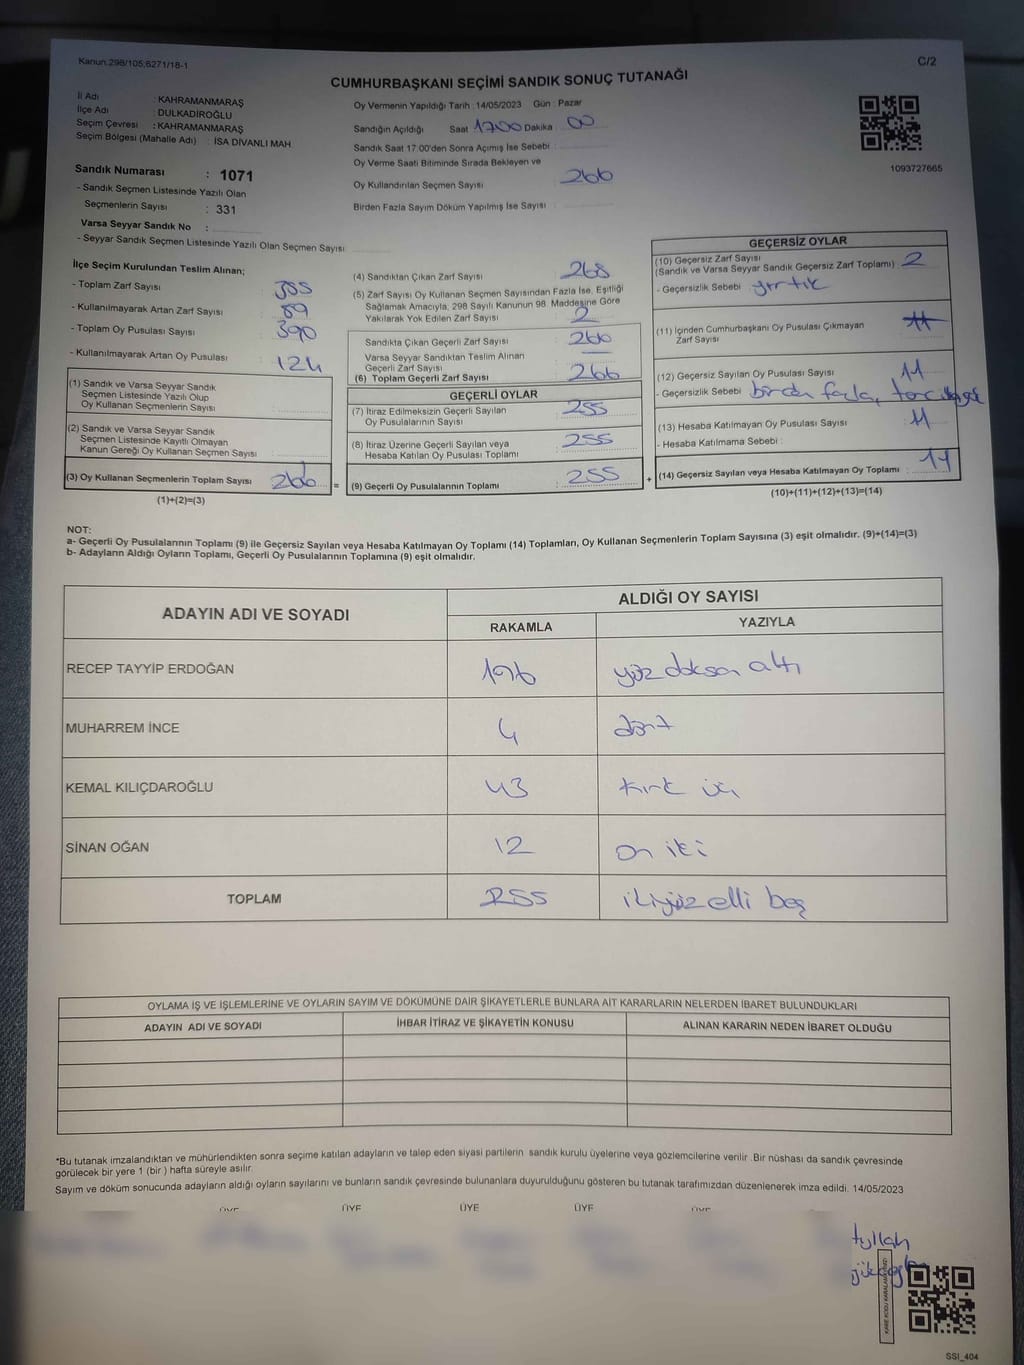 Kanun.298/105,6271/18-1
C/2
CUMHURBAŞKANI SEÇİMİ SANDIK SONUÇ TUTANAĞI
İl Adı : KAHRAMANMARAŞ
İlçe Adı : DULKADİROĞLU
Seçim Çevresi : KAHRAMANMARAŞ
Seçim Bölgesi (Mahalle Adı) : İSA DİVANLI MAH
Sandık Numarası : 1071
- Sandık Seçmen Listesinde Yazılı Olan
Seçmenlerin Sayısı : 331
Varsa Seyyar Sandık No :
- Seyyar Sandık Seçmen Listesinde Yazılı Olan Seçmen Sayısı
Oy Vermenin Yapıldığı Tarih : 14/05/2023 Gün : Pazar
Sandığın Açıldığı Saat 17:00 Dakika : 00
Sandık Saat 17:00'den Sonra Açımış İse Sebebi :
Oy Verme Saati Bitiminde Sırada Bekleyen ve
Oy Kullandırılan Seçmen Sayısı : 266
Birden Fazla Sayım Döküm Yapılmış İse Sayısı :
1093727665
İlçe Seçim Kurulundan Teslim Alınan;
- Toplam Zarf Sayısı : 355
- Kullanılmayarak Artan Zarf Sayısı : 89
- Toplam Oy Pusulası Sayısı : 390
- Kullanılmayarak Artan Oy Pusulası : 124
(1) Sandık ve Varsa Seyyar Sandık
Seçmen Listesinde Yazılı Olup
Oy Kullanan Seçmenlerin Sayısı :
(2) Sandık ve Varsa Seyyar Sandık
Seçmen Listesinde Kayıtlı Olmayan
Kanun Gereği Oy Kullanan Seçmen Sayısı :
(3) Oy Kullanan Seçmenlerin Toplam Sayısı : 266
(1)+(2)=(3)
=
(4) Sandıktan Çıkan Zarf Sayısı : 268
(5) Zarf Sayısı Oy Kullanan Seçmen Sayısından Fazla İse, Eşitliği
Sağlamak Amacıyla, 298 Sayılı Kanunun 98. Maddesine Göre
Yakılarak Yok Edilen Zarf Sayısı : 2
Sandıkta Çıkan Geçerli Zarf Sayısı : 266
Varsa Seyyar Sandıktan Teslim Alınan
Geçerli Zarf Sayısı : —
(6) Toplam Geçerli Zarf Sayısı : 266
GEÇERLİ OYLAR
(7) İtiraz Edilmeksizin Geçerli Sayılan
Oy Pusulalarının Sayısı : 255
(8) İtiraz Üzerine Geçerli Sayılan veya
Hesaba Katılan Oy Pusulası Toplamı : 255
(9) Geçerli Oy Pusulalarının Toplamı : 255
+
GEÇERSİZ OYLAR
(10) Geçersiz Zarf Sayısı
(Sandık ve Varsa Seyyar Sandık Geçersiz Zarf Toplamı) : 2
- Geçersizlik Sebebi : yırtık
(11) İçinden Cumhurbaşkanı Oy Pusulası Çıkmayan
Zarf Sayısı
(12) Geçersiz Sayılan Oy Pusulası Sayısı : 11
- Geçersizlik Sebebi : birden fazla,
(13) Hesaba Katılmayan Oy Pusulası Sayısı : 11
- Hesaba Katılmama Sebebi :
(14) Geçersiz Sayılan veya Hesaba Katılmayan Oy Toplamı : 11
(10)+(11)+(12)+(13)=(14)
NOT:
a- Geçerli Oy Pusulalarının Toplamı (9) ile Geçersiz Sayılan veya Hesaba Katılmayan Oy Toplamı (14) Toplamları, Oy Kullanan Seçmenlerin Toplam Sayısına (3) eşit olmalıdır. (9)+(14)=(3)
b- Adayların Aldığı Oyların Toplamı, Geçerli Oy Pusulalarının Toplamına (9) eşit olmalıdır.
ADAYIN ADI VE SOYADI
ALDIĞI OY SAYISI
RAKAMLA YAZIYLA
RECEP TAYYİP ERDOĞAN 196 yüz doksan altı
MUHARREM İNCE 4 dört
KEMAL KILIÇDAROĞLU 43 kırk üç
SİNAN OĞAN 12 on iki
TOPLAM 255 ikiyüz elli beş
OYLAMA İŞ VE İŞLEMLERİNE VE OYLARIN SAYIM VE DÖKÜMÜNE DAİR ŞİKAYETLERLE BUNLARA AİT KARARLARIN NELERDEN İBARET BULUNDUKLARI
ADAYIN ADI VE SOYADI İHBAR İTİRAZ VE ŞİKAYETİN KONUSU ALINAN KARARIN NEDEN İBARET OLDUĞU
*Bu tutanak imzalandıktan ve mühürlendikten sonra seçime katılan adayların ve talep eden siyasi partilerin sandık kurulu üyelerine veya gözlemcilerine verilir .Bir nüshası da sandık çevresinde
görülecek bir yere 1 (bir ) hafta süreyle asılır.
Sayım ve döküm sonucunda adayların aldığı oyların sayılarını ve bunların sandık çevresinde bulunanlara duyurulduğunu gösteren bu tutanak tarafımızdan düzenlenerek imza edildi. 14/05/2023
ÜYE ÜYE ÜYE ÜYE ÜYE
tullah
SSI_404